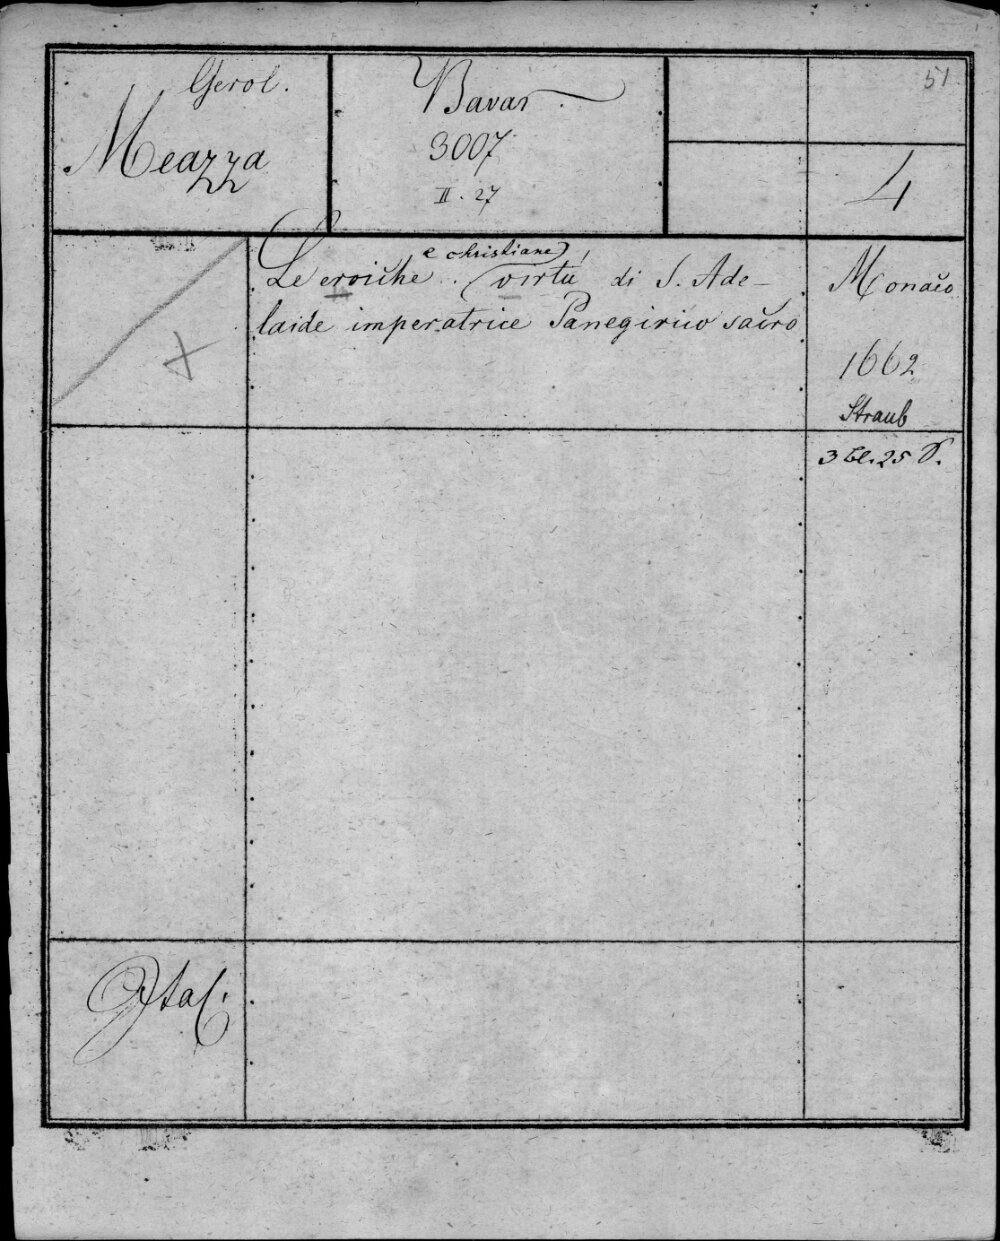 51
Gerol.
Meazza
Bavar.
3007
II. 27
4
Le eroiche e christiane virtú di S. Ade-
laide imperatrice Panegirico sacro
Monaco
1662
Straub
3 Bl. 25 S.
Ital.